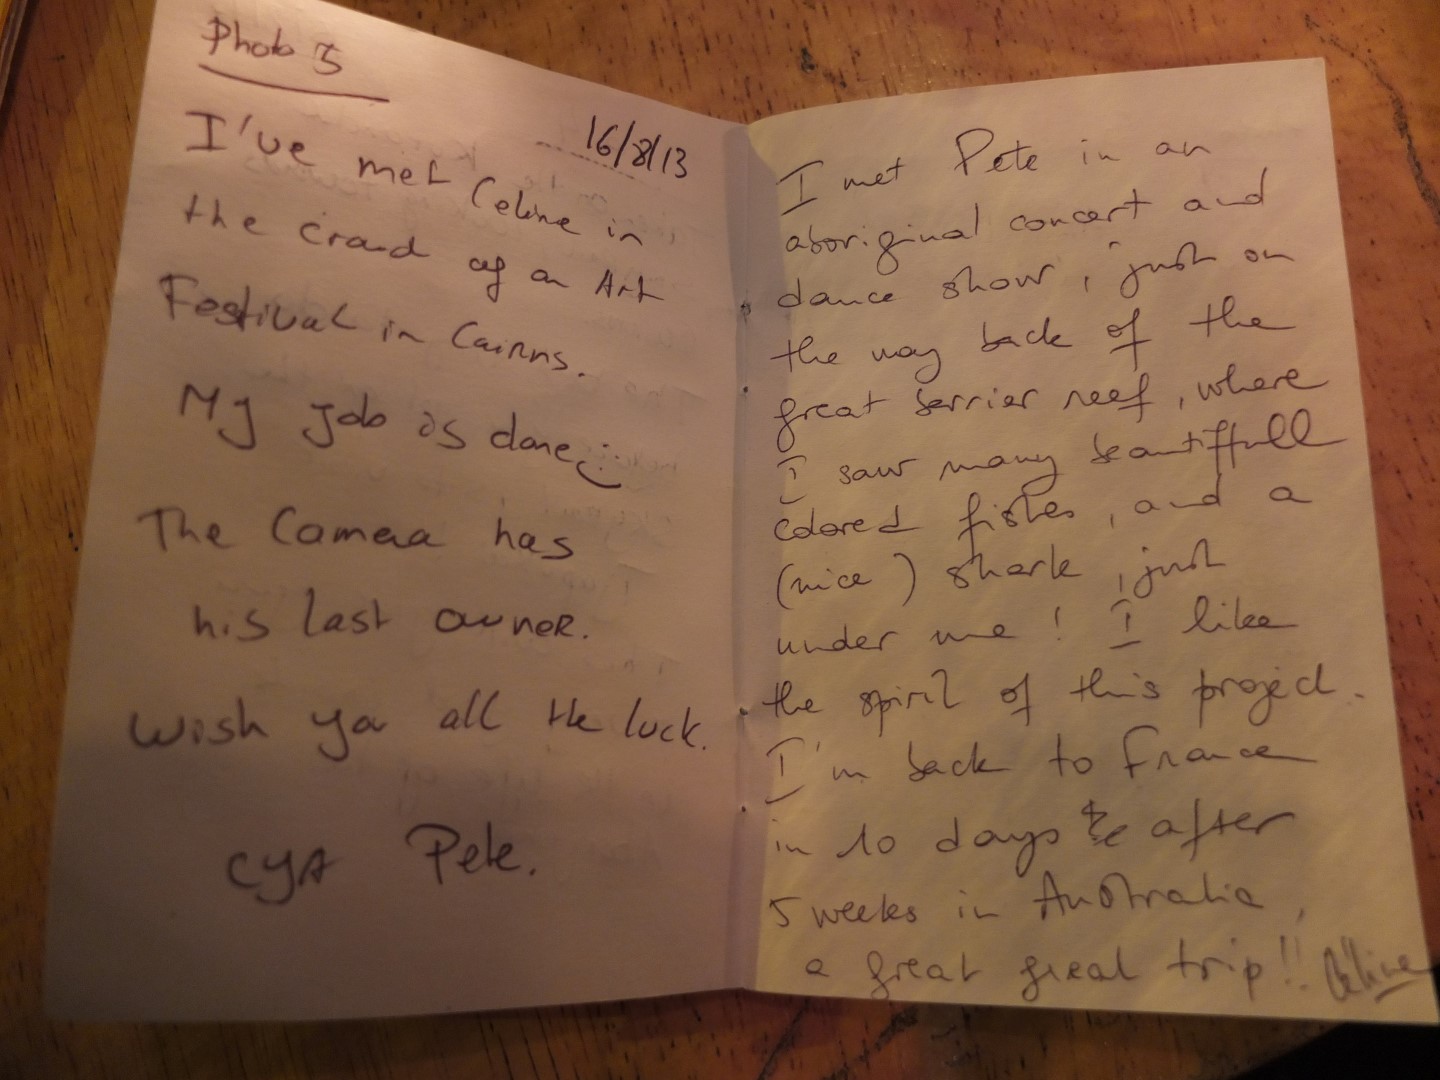 Photo 5
16/8/13
I've met Celine in
the crowd of an Art
Festival in Cairns.
My job is done
The Camera has
his last owner.
Wish you all the luck.
cya Pete.
I met Pete in an
aboriginal concert and
dance show, just on
the way back of the
great berrier reef, where
I saw many beautiffull
colored fishes, and a
(nice) shark, just
under me! I like
the spirit of this project.
I'm back to France
in 10 days after
5 weeks in Australia,
a great great trip!! Céline